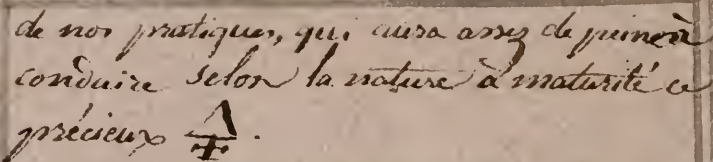 de nos pratiques, qui aura assez de peine à
conduire selon la nature à maturité ce
précieux 🜍.